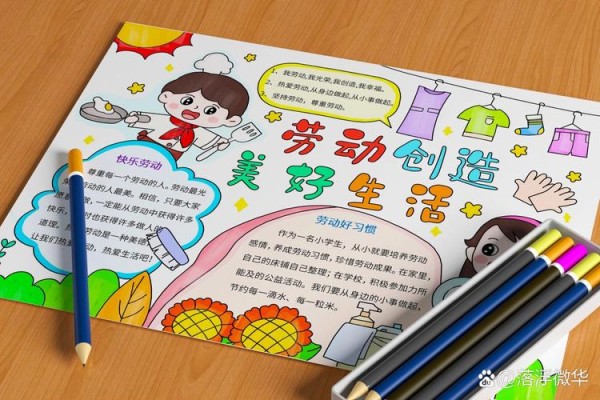 1、我劳动,我光荣,我创造,我幸福。
2、热爱劳动,从身边做起,从小事做起。
3、坚持劳动，尊重劳动。
劳动创造
美好生活
快乐劳动
尊重每一个劳动的人。劳动最光
劳动的人最美。相信，只要大家
一定能从劳动中获得许多
快乐，时也获得许多做人
道理。劳动是一种美德
让我们热爱动，热爱生活吧！
劳动好习惯
作为一名小学生，从小就要培养劳动
感情，养成劳动习惯，珍惜劳动成果。在家里，
自己的床铺自己整理；在学校，积极参加力所
能及的公益活动。我们要从身边的小事做起，
节约每一滴水、每一粒米。
@落浮微华